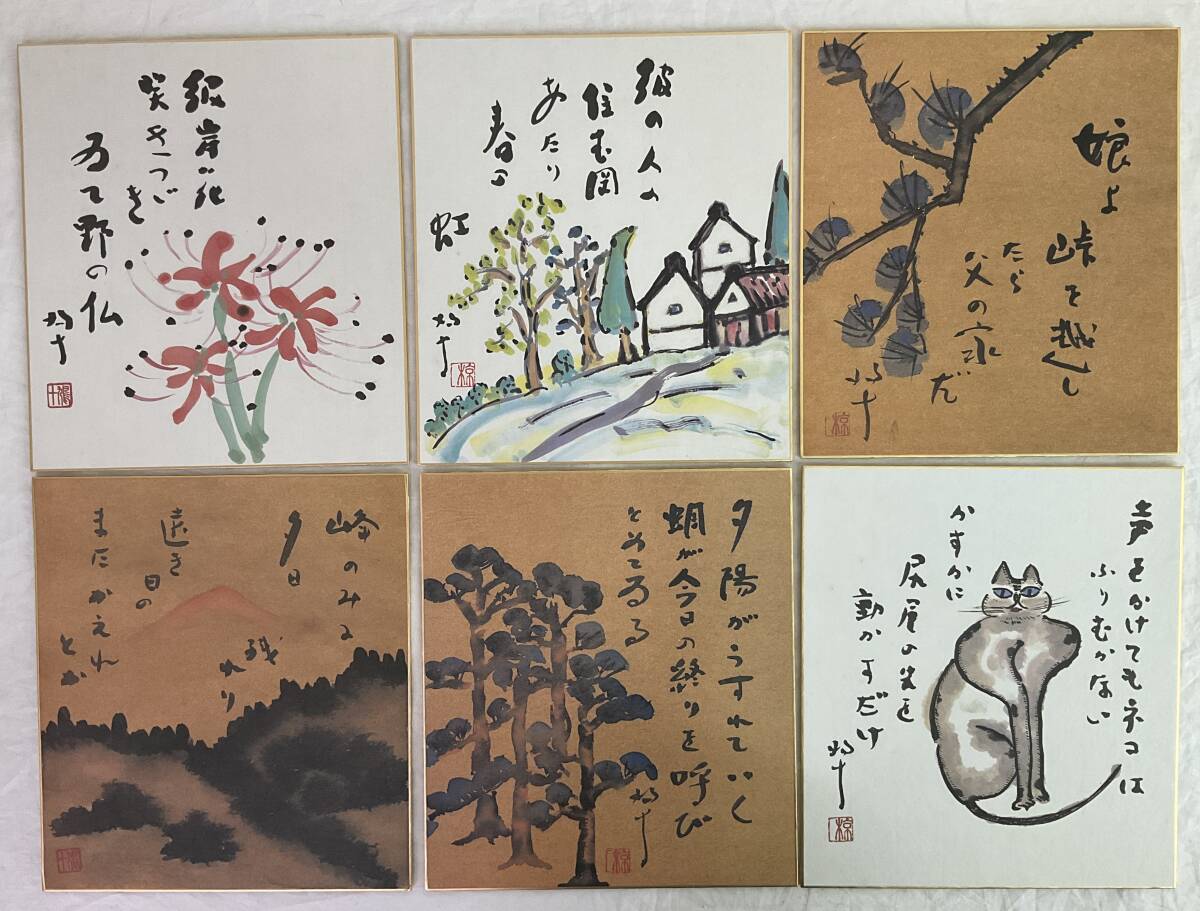 彼岸花
咲きつづき
野の仏
鳩十
鳩十
彼の人の
住む国
あたり
春の
虹
鳩十
椋
娘よ
峠を越し
たら
父の家だ
鳩十
椋
峰のみに
夕日
残れり
遠き
日の
またかえれ
とか
鳩十
夕陽がうすれていく
蜩が今日の終りを呼び
とめてゐる
鳩十
椋
声をかけてもネコは
ふりむかない
かすかに
尻尾の先を
動かすだけ
鳩十
椋